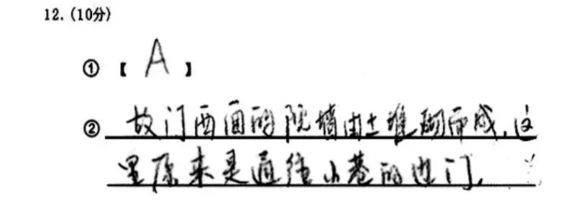 12.(10分)
①【 A 】
②故门西面的院墙由土堆砌而成,这
里原来是通往小巷的边门.